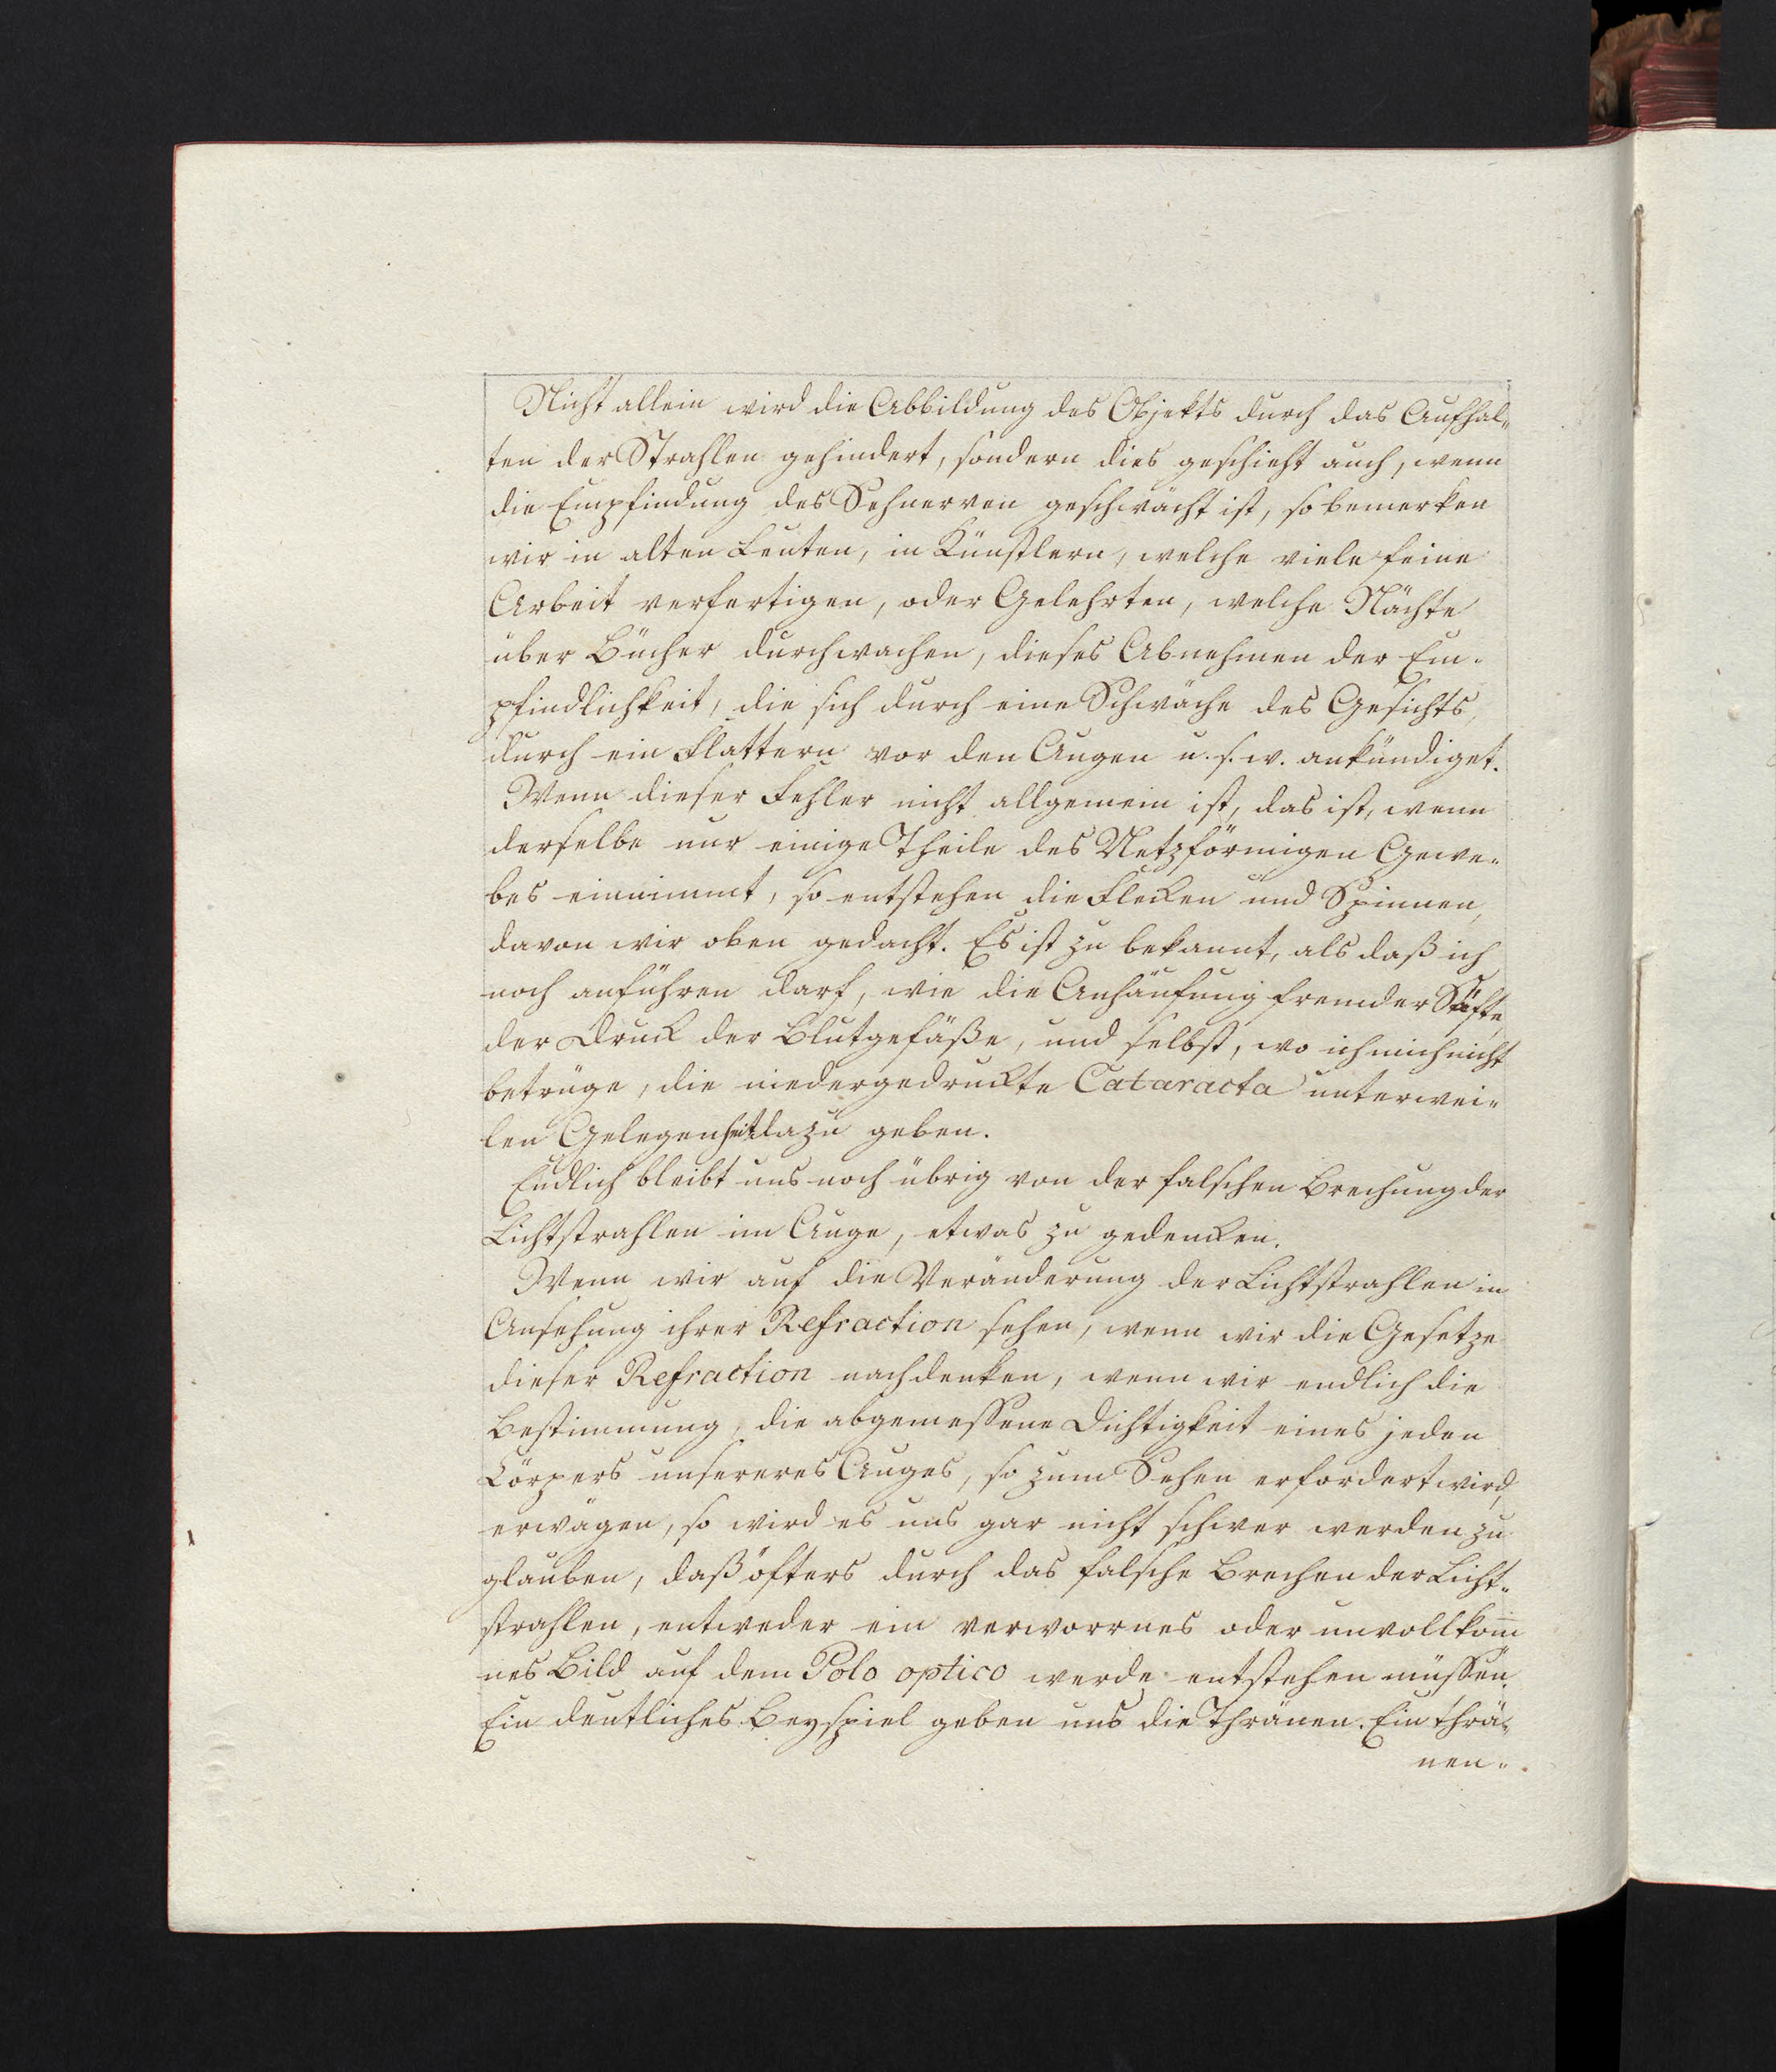 Nicht allein wird die Abbildung des Objekts durch das Aufhal-
ten der Strahlen gehindert, sondern dies geschieht auch, wenn
die Empfindung des Sehnerven geschwächt ist, so bemerken
wir in alten Leuten, in Künstlern, welche viele feine
Arbeit verfertigen, oder Gelehrten, welche Nächte
über Bücher durchwachen, dieses Abnehmen der Em-
pfindlichkeit, die sich durch eine Schwäche des Gesichts,
durch ein Flattern vor den Augen u. s. w. ankündiget.
Wenn dieser Fehler nicht allgemein ist, das ist, wenn
derselbe nur einige Theile des Netzförmigen Gewe-
bes einnimmt, so entstehen die Flecken und Spinnen,
davon wir oben gedacht. Es ist zu bekannt, als daß ich
noch anführen darf, wie die Anhäufung fremder Säfte,
der Druck der Blutgefäße, und selbst, wo ich mich nicht
betrüge, die niedergedruckte Cataracta unterwei-
len Gelegenheit dazu geben.
Endlich bleibt uns noch übrig von der falschen Brechung der
Lichtstrahlen im Auge, etwas zu gedencken.
Wenn wir auf die Veränderung der Lichtstrahlen in
Ansehung ihrer Refraction sehen, wenn wir die Gesetze
dieser Refraction nachdenken, wenn wir endlich die
Bestimmung, die abgemessene Dichtigkeit eines jeden
Cörpers unseres Auges, so zum Sehen erfordert wird,
erwägen, so wird es uns gar nicht schwer werden zu
glauben, daß öfters durch das falsche Brechen der Licht-
strahlen, entweder ein verworrnes oder unvollkom̅
nes Bild auf dem Polo optico werde entstehen müssen.
Ein deutliches Beyspiel geben uns die Thränen. Ein thrä-
nen-